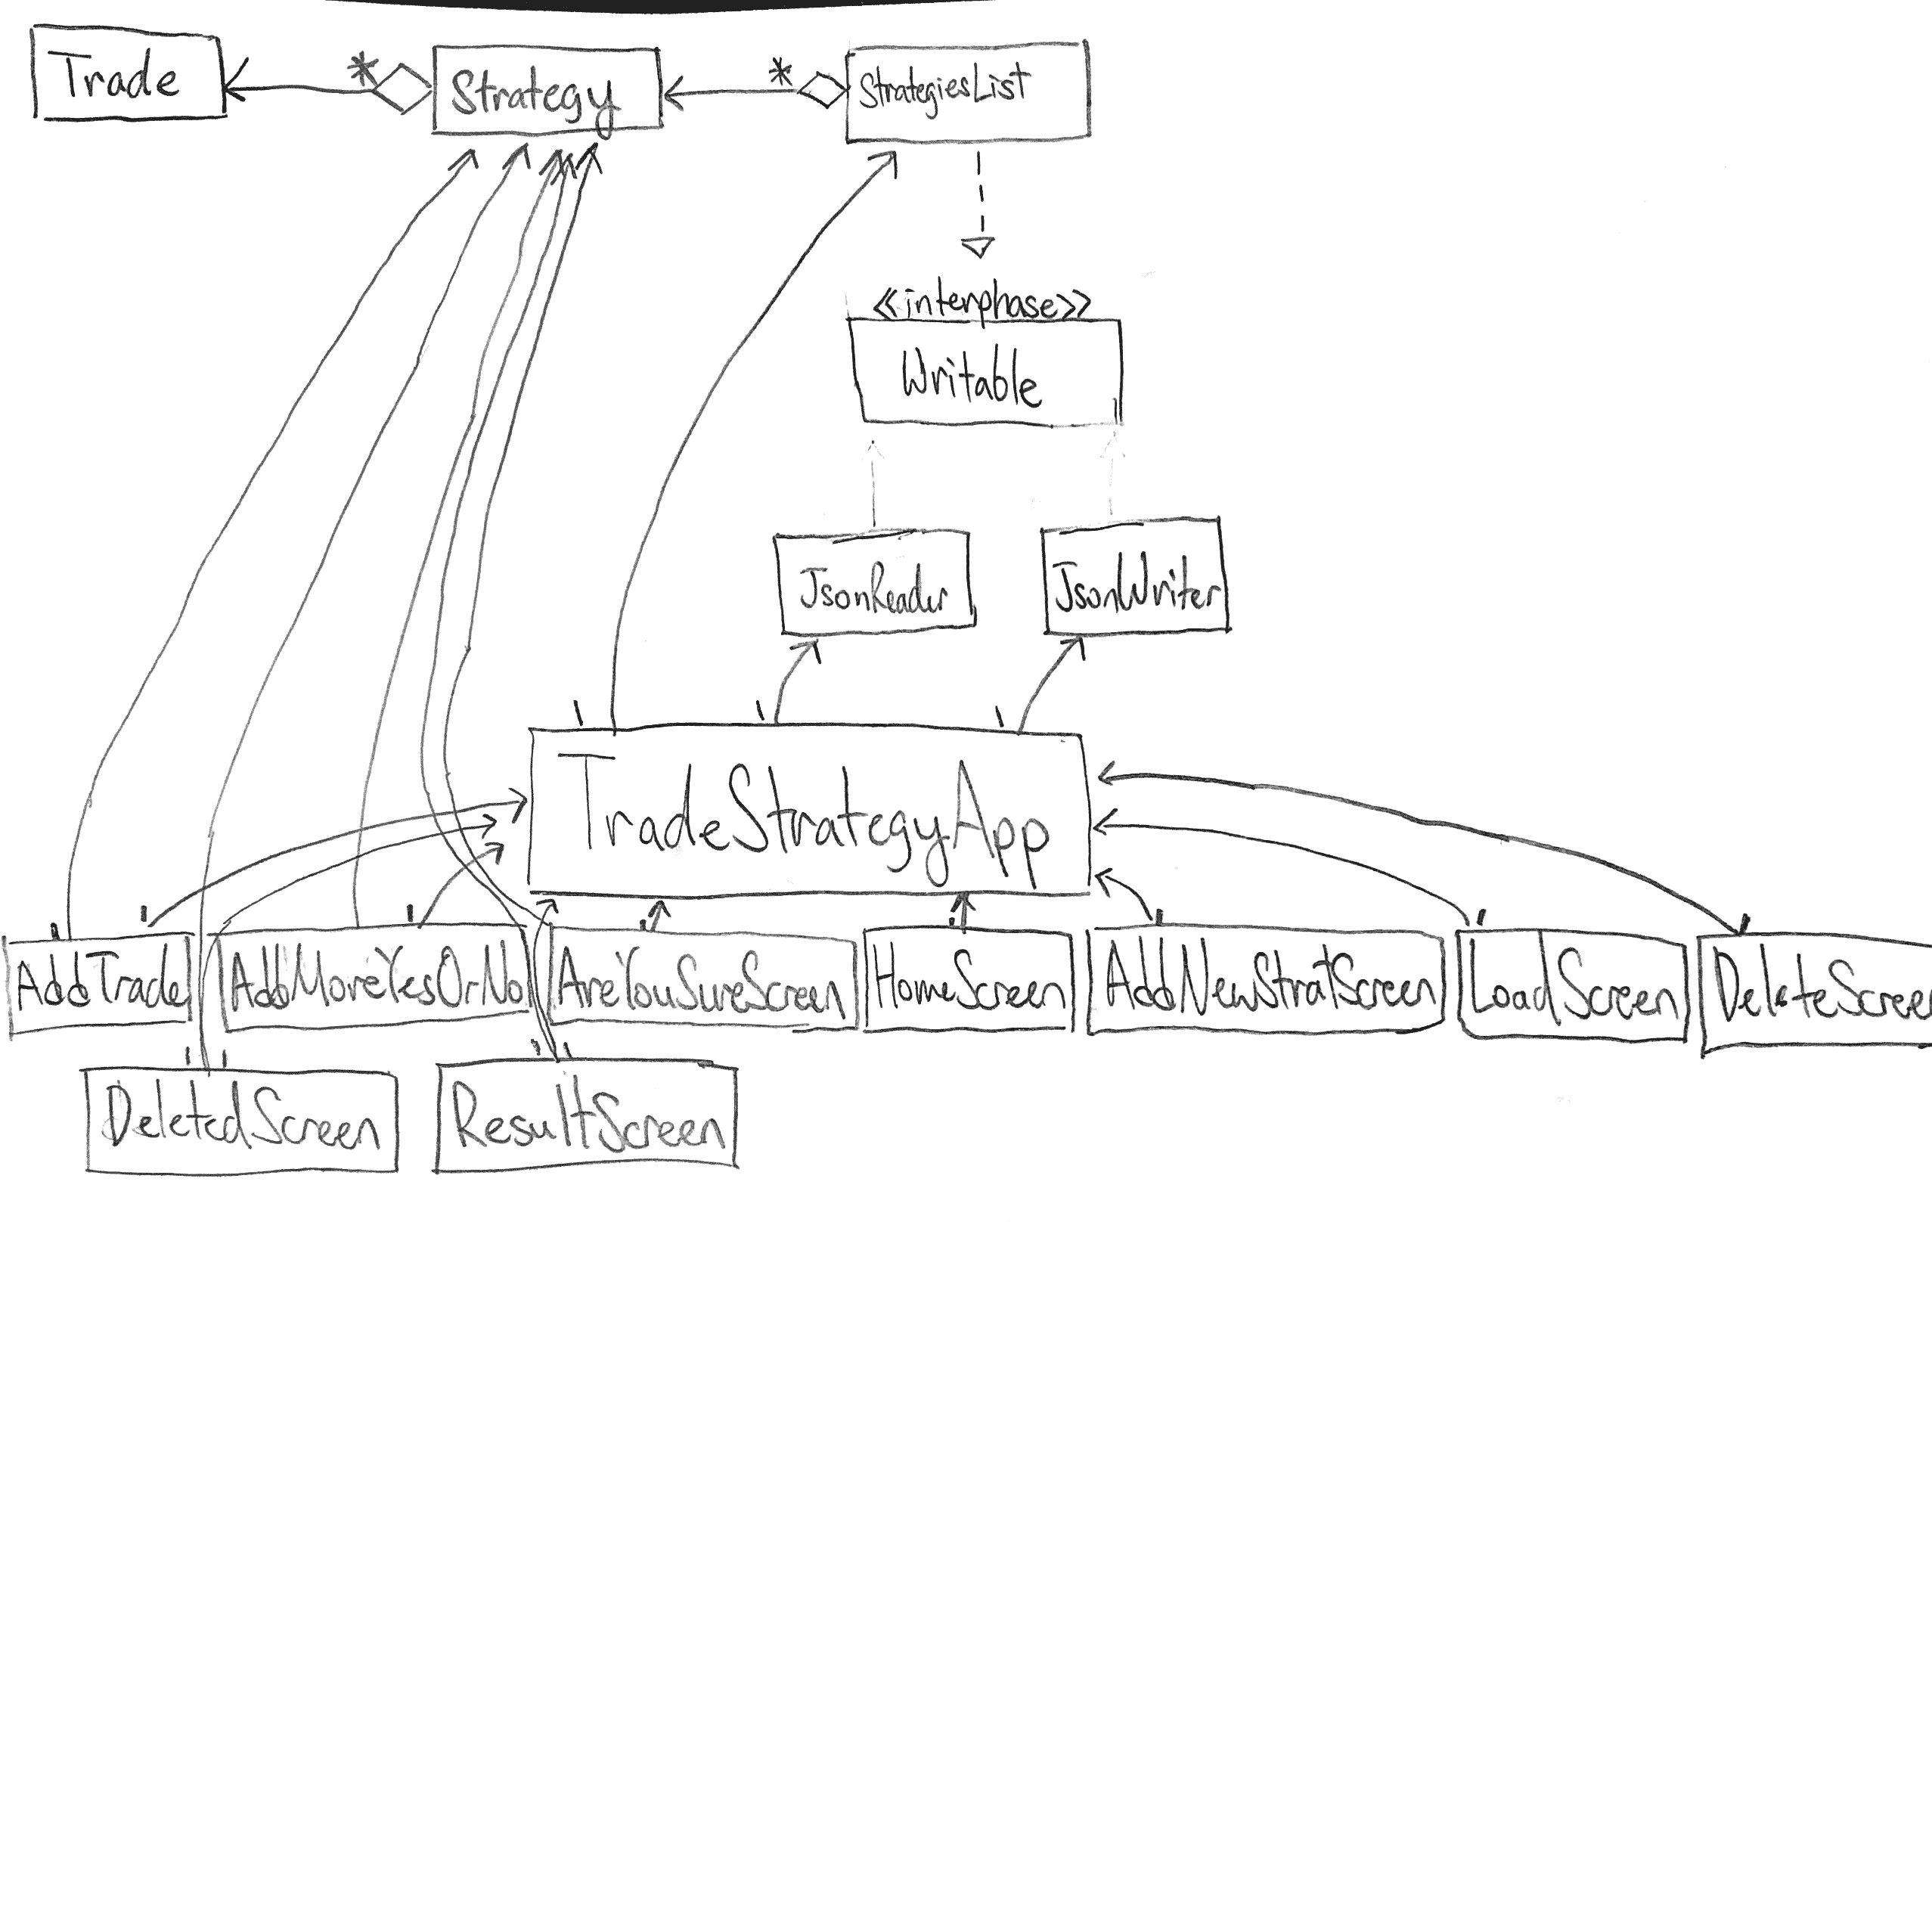 Trade
*
Strategy
*
StrategiesList
<<interphase>>
Writable
JsonReader
JsonWriter
1
1
1
TradeStrategyApp
1
1
1
1
1
1
1
1
AddTrade
AddMoreYesOrNo
AreYouSureScreen
HomeScreen
AddNewStratScreen
LoadScreen
DeleteScreen
1
1
1
1
DeletedScreen
ResultScreen